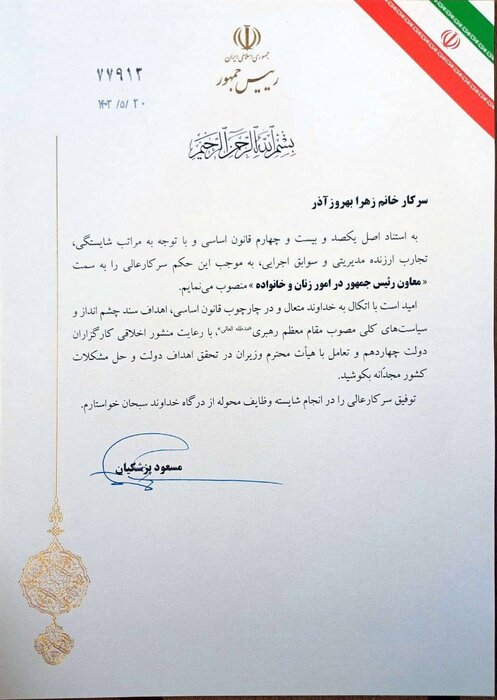 جمهوری اسلامی ایران
رییس جمهور
۷۷۹۱۳
۱۴۰۳/۵/۲۰
بسم الله الرحمن الرحیم
سرکار خانم زهرا بهروزآذر
به استناد اصل یکصد و بیست و چهارم قانون اساسی و با توجه به مراتب شایستگی،
تجارب ارزنده مدیریتی و سوابق اجرایی، به موجب این حکم سرکارعالی را به سمت
«معاون رئیس جمهور در امور زنان و خانواده» منصوب می‌نمایم.
امید است با اتکال به خداوند متعال و در چارچوب قانون اساسی، اهداف سند چشم انداز و
سیاست‌های کلی مصوب مقام معظم رهبری (مدظله العالی)، با رعایت منشور اخلاقی کارگزاران
دولت چهاردهم و تعامل با هیأت محترم وزیران در تحقق اهداف دولت و حل مشکلات
کشور مجدّانه بکوشید.
توفیق سرکارعالی را در انجام شایسته وظایف محوله از درگاه خداوند سبحان خواستارم.
مسعود پزشکیان